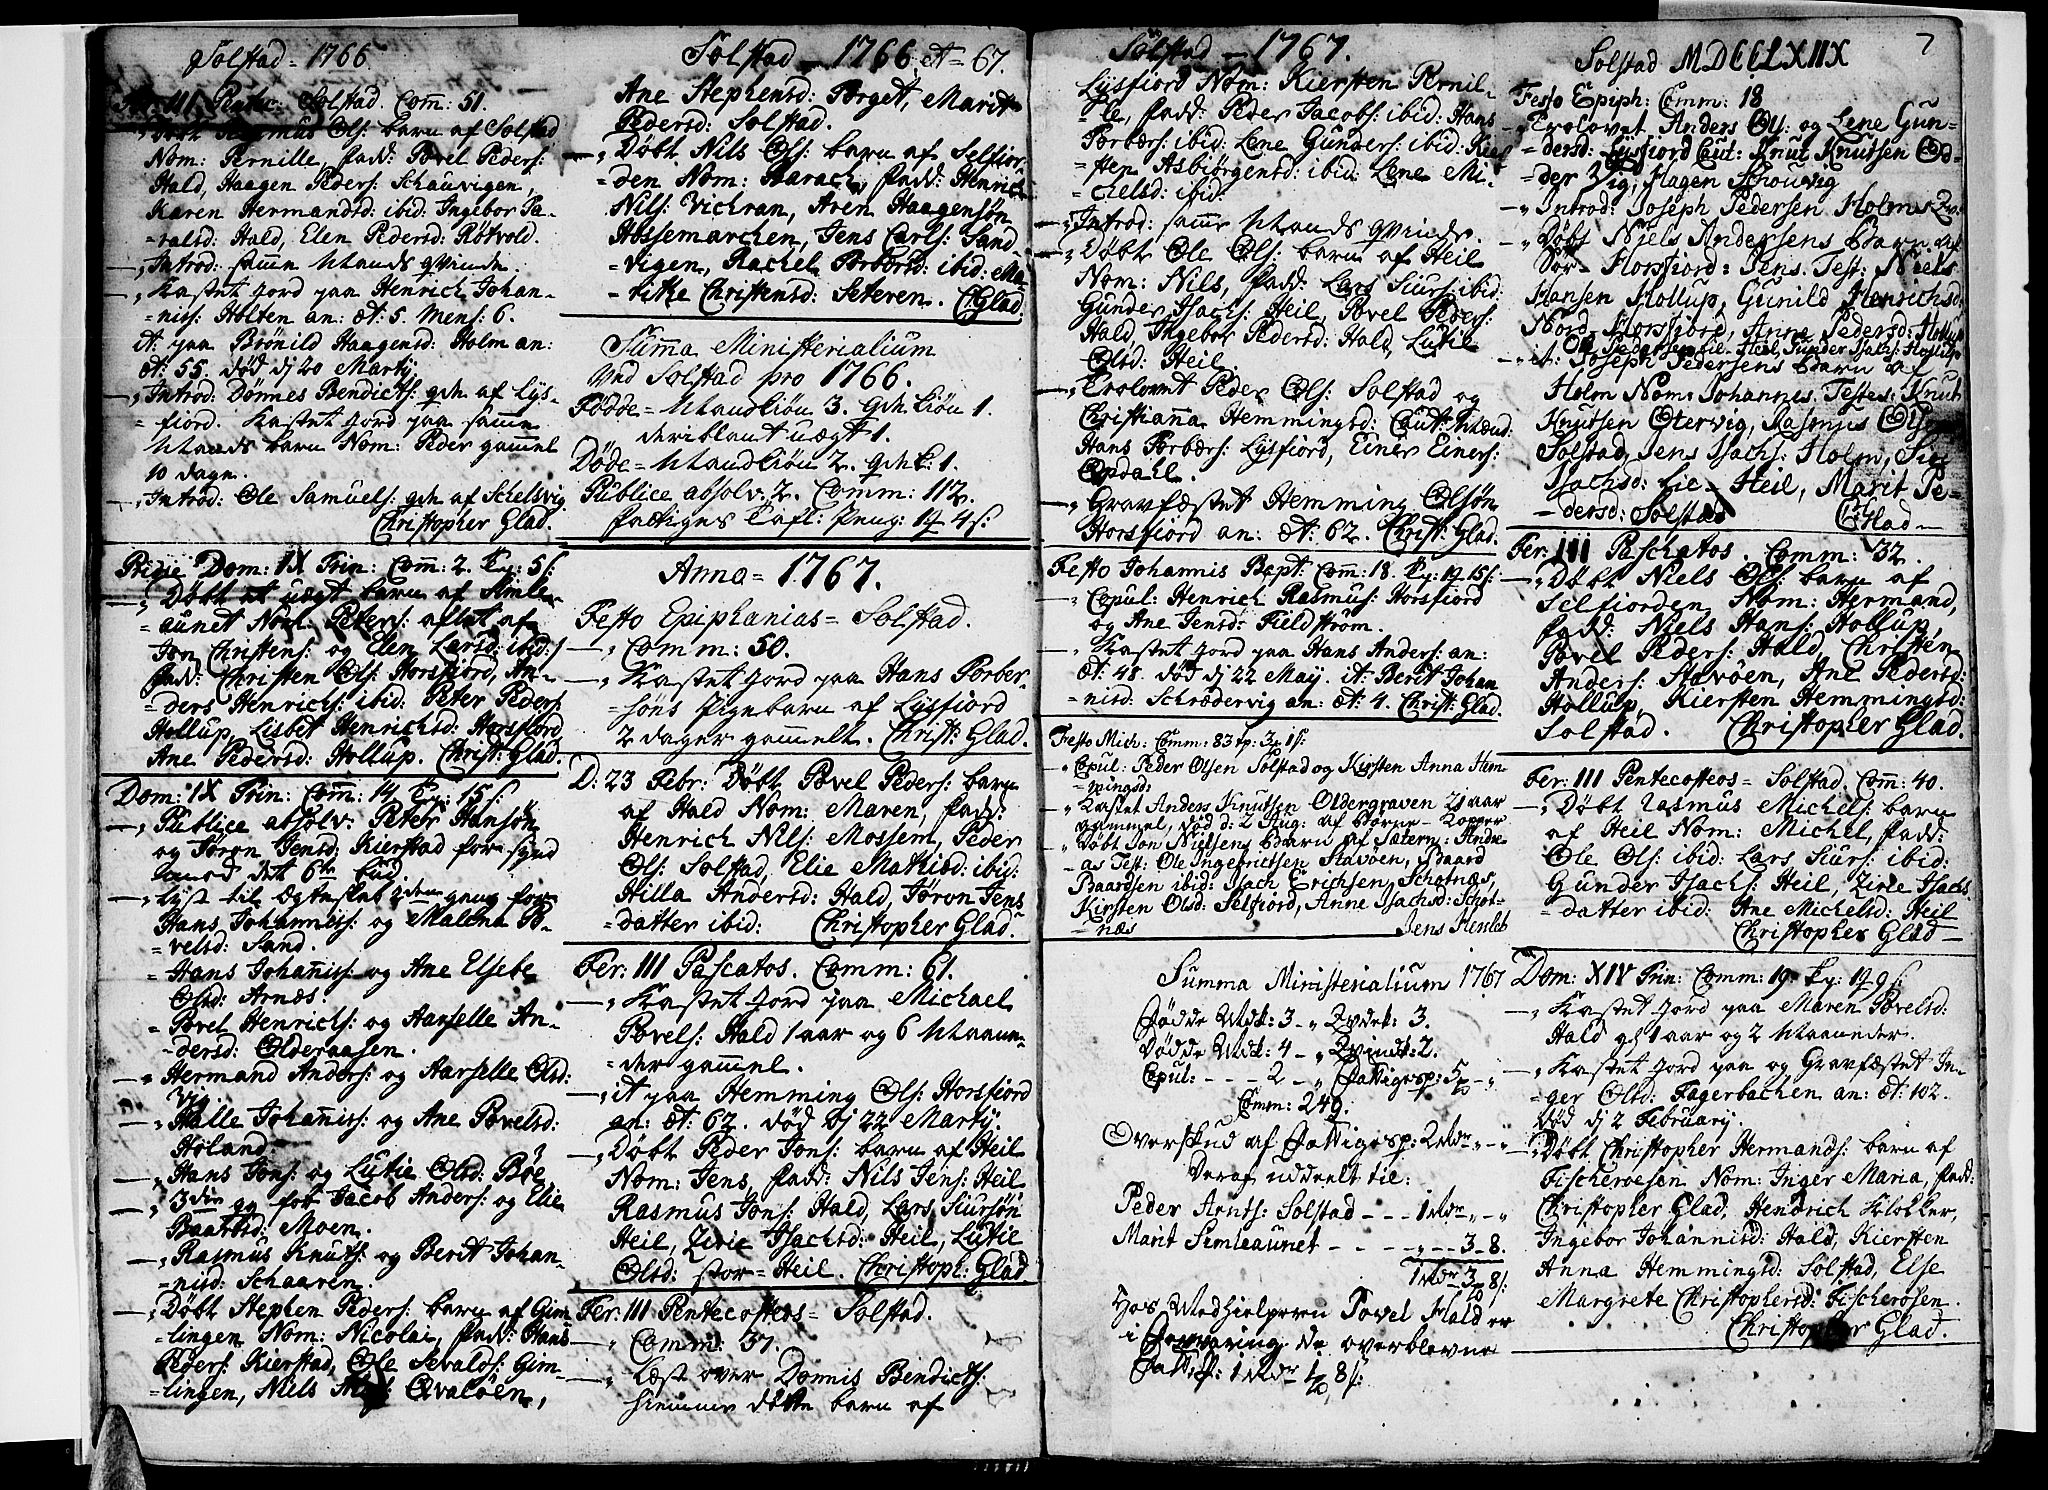 Solstad = 1766
Fer: III Pentec: Solstad. Comm: 51.
Døbt Rasmus Ols: barn af Solstad
Nom: Pernille, fadd: Povel Peders:
Hald, Haagen Peders: Schauvigen,
Karen Hermandsd: ibid: Ingebor Pa-
=valsd: Hald, Elen Pedersd: Røtvold.
Introd: samme Mands qvinde.
Kastet Jord paa Henrich Johan-
=nis: Holten an: æt: 5. Mens: 6.
it: paa Brönild Haagensd: Holm an:
æt: 55. død dj 20 Martij.
Introd: Dønnes Bendicts: qvh. af Lys-
=fiord. Kastet Jord paa samme
Mands barn Nom: Peder gammel
10 dage.
Introd: Ole Samuels: qvh af Schelsvig
Christopher Glad.
Pridie Dom: IX Trin: Comm: 2.
Døbt et uægt barn af Simle-
=aunet Nom: Peter: aflet af
Jon Christens: og Elen Larsd: ibid:
fadd: Christen Ols: Horsfiord, An-
=ders Henrichs: ibid: Peter Peders:
Hollup, Lisbet Henrichsd: Horsfiord
Ane Pedersd: Hollup. Christ: Glad.
Dom: IX Trin: Comm: 14.
Publice absolv: Peter Hansøn
og Jøron Jensd: Kierstad for synd
imod det 6te bud.
Lyst til Ægteskab 2den gang for
Hans Johannis: og Malena Po-
=velsd: Sand.
=Hans Johannis: og Ane Elsebe
Olsd: Arnæs.
=Povel Henrichs: og Marselle An-
=dersd: Olderaasen.
Hermand Anders: og Marselle Olsd:
Vig.
Halle Johannis: og Ane Povelsd:
Høland.
Hans Jons: og Lutie Olsd: Bøe
3die g: for Jacob Anders: og Elie
Baartsd: Moen.
Rasmus Knuts: og Berit Johan-
=nisd: Schaaren.
Døbt Stephen Peders: barn af Gim-
=lingen Nom: Nicolai, fadd: Hans
Peders: Kierstad, Ole Sevalds: Gim-
=lingen, Niels Qvaløen,
Solstad - 1766 et = 67.
Ane Stephensd: Forget, Marit
Pedersd: Solstad.
Døbt Nils Ols: barn af Selfior-
=den Nom: Barach, fadd: Henrich
Nils: Vichran, Aren Haagensøn
Hossemarchen, Jens Carls: Sand
=vigen, Rachel Torbersd: ibid: Ma-
=ritke Christensd: Seteren. CGlad.
Summa Ministerialium
Ved Solstad pro 1766.
Fødde = Mandkiøn 3. Qvh.kiøn 1.
deriblant uægt 1.
Døde = Mandkiøn 2. Qvh.k: 1.
Publice absolv: 2. Comm: 112.
Fattiges Tafl: Peng:
Anno = 1767.
Festo Epiphanias = Solstad.
Comm: 50.
Kastet Jord paa Hans Torber-
=søns Pigebarn af Lysfiord
2 dager gammelt. Christ: Glad.
D: 23 Febr: Døbt Povel Peders: barn
af Hald Nom: Maren, fadd:
Henrich Nils: Mossem, Peder
Ols: Solstad, Elie Mathisd: ibid:
Hilla Andersd: Hald, Jøron Jens
=datter ibid: Christopher Glad.
Fer: III Pascatos. Comm: 61.
Kastet Jord paa Michael
Povels: Hald 1 aar og 6 Maane-
=der gammel.
it paa Hemming Ols: Horsfiord
an: æt: 62. død dj 22 Martij.
Døbt Peder Jons: barn af Heil
Nom: Jens, fadd: Nils Jens: Heil
Rasmus Jons: Hald, Lars Siursøn
Heil, Zirie Isachsd: Heil, Lutie
Olsd: stor=Heil. Christoph: Glad
Fer: III Pentecostes = Solstad.
Comm: 37.
Læst over Dønnis Bendicts:
hiemme døbte barn af
Solstad - 1767.
Lysfiord Nom: Kiersten Pernil-
=le, fadd: Peder Jacobs: ibid: Hans
Torbers: ibid: Lene Gunders: ibid: Kier
=sten Asbiørgensd: ibid: Lene Mi-
=chelsd: ibid:
Introd: samme Mands qvinde.
Døbt Ole Ols: barn af Heil
Nom: Nils, fadd: Lars Siurs: ibid:
Gunder Isachs: Heil, Povel Peders:
Hald, Ingebor Pedersd: Hald, Lutie
Olsd: Heil.
Trolovet Peder Ols: Solstad og
Christianna Hemmingsd: Caut: Mænd:
Hans Torbers: Lysfiord, Einer Einers:
Opdahl.
Gravfæstet Hemming Olsøn
Horsfiord an: æt: 62. Christ: Glad.
Festo Johannis Bapt: Comm: 18.
Copul: Henrich Rasmus: Horsfiord
og Ane Jensd: Fieldstrøm.
Kastet Jord paa Hans Anders: an:
æt: 48. død dj 22 May. it: Berit Johan
=nisd: Schrødervig an: æt: 4. Christ: Glad.
Festo Mich: Comm: 83
Copul: Peder Olsen Solstad og Kirsten Anna Hem-
=mingsd:
Kastet Anders Knutsen Oldergraven 21 aar
gammel, død d: 2 Aug: af Børne-Kopper
Døbt Jon Nielsens Barn af Sætern: Andre-
as Test: Ole Ingebrictsen Stavøen, Baard
Baardsen ibid: Isach Erichsen Schotnæs,
Kirsten Olsd: Selfiord, Anne Isachsd: Schot=
=næs Jens Henleb
Summa Ministerialium 1767
Fødde Mdk: 3 - Qvdek: 3.
Dødde Mdk: 4 - Qvindk: 2.
Copul: - - - 2 - Fattigesp: 5
Comm: 249.
Overskud af Fattigesp: 2
Deraf uddeelt til:
Peder Arnts: Solstad - - - 1
Marit Simleaunet - - - - 3-8.
Hos Medhielperen Povel Hald er
i Forvaring de overblevne
Solstad MDCCLXIIX 7
Festo Epiph: Comm: 18
Trolovet Anders Ols: og Lene Gun=
=dersd: Lysfiord Caut: Knut Knutsen Od=
=der Vig, Hagen Schouvig
Introd: Joseph Pedersen Holms Qv:
Døbt Niels Andersens Barn af
Sør-Horsfiord: Jens. Test: Niels
Hansen Hollup, Gunild Henrichsd:
Nord-Horsfiord, Anne Pedersd: Hollup
Ole Pedersen Lie-Heil, Gunder Isachs: Hollup
it: Joseph Pedersens Barn af
Holm Nom: Johannes. Testes: Knut
Knutsen Otervig, Rasmus Olsen
Solstad, Jens Isachs: Holm, Siri
Isachsd: Lie-Heil, Marit Pe=
=dersd: Solstad CGlad
Fer: III Paschatos. Comm: 32.
Døbt Niels Ols: barn af
Selfiorden Nom: Hermand,
fadd: Niels Hans: Hollup,
Povel Peders: Hald, Christen
Anders: Støvøen, Ane Pedersd:
Hollup, Kiersten Hemmingsd:
Solstad. Christopher Glad.
Fer: III Pentecostes = Solstad. Comm: 40.
Døbt Rasmus Michels: barn
af Heil Nom: Michel, fadd:
Ole Ols: ibid: Lars Siurs: ibid:
Gunder Isachs: Heil, Zirie Isachs
=datter ibid: Ane Michelsd: Heil
Christopher Glad
Dom: XIV Trin: Comm: 19.
Kastet Jord paa Maren Povelsd:
Hald 1 aar og 2 Maaneder.
Kastet Jord paa og Gravfæstet In-
=ger Olsd: Fagerbachen an: æt: 102.
død dj 2 February
Døbt Christopher Hermands: barn af
Fischerosen Nom: Inger Maria, fadd:
Christopher Glad, Hendrich Klokker,
Ingebor Johannisd: Hald, Kiersten
Anna Hemmingsd: Solstad, Else
Margrete Christophersd: Fischerosen.
Christopher Glad.